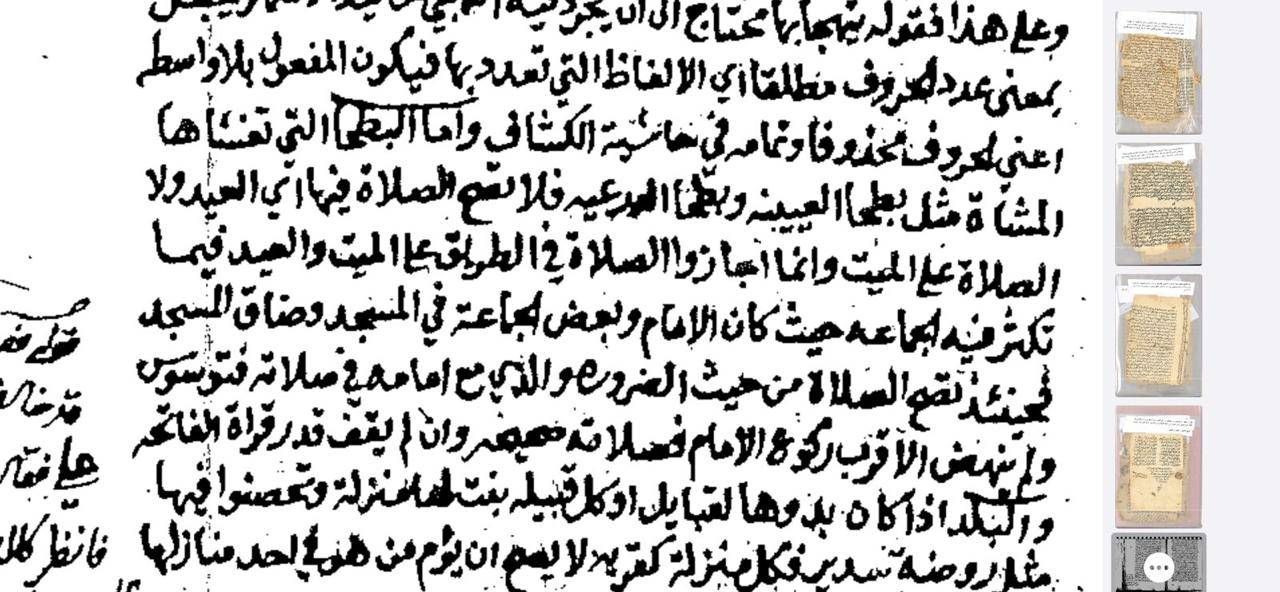 وعلى هذا فقوله يتهجابها محتاج الى ان يجرد
بمعنى عدد الحروف مطلقا اي الالفاظ التي تعدد بها فيكون المفعول بلا واسطه
اعني الحروف محذوفا وتمامه في حاشية الكشاف واما البطحا التي تغشاها
المشاة مثل بطحا العيينه وبطحا فلا تصح الصلاة فيها اي العيد ولا
الصلاة على الميت وانما اجازوا الصلاة في الطريق على الميت والعيد فيما
تكثر فيه الجماعه حيث كان الامام وبعض الجماعة في المسجد وضاق المسجد
فحينئذ تصح الصلاة من حيث الضروره والذي مع امامه في صلاته فتوسوس
ولم ينهض الا قرب ركوع الامام فصلاته صحيحه وان لم يقف قدر قراة الفاتحه
والبلد اذا كان بدوها لقبايل او كل قبيله بنت لها منزلة وتحصنوا فيها
مثل روضة سدير فكل منزلة كقريه لا يصح ان يؤم من هو في احد منازلها
قوله
على
فانظر كلام